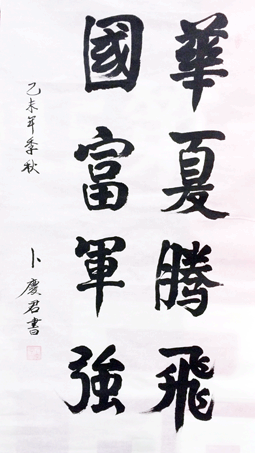 華夏騰飛
國富軍強
乙未年季秋
卜慶君書